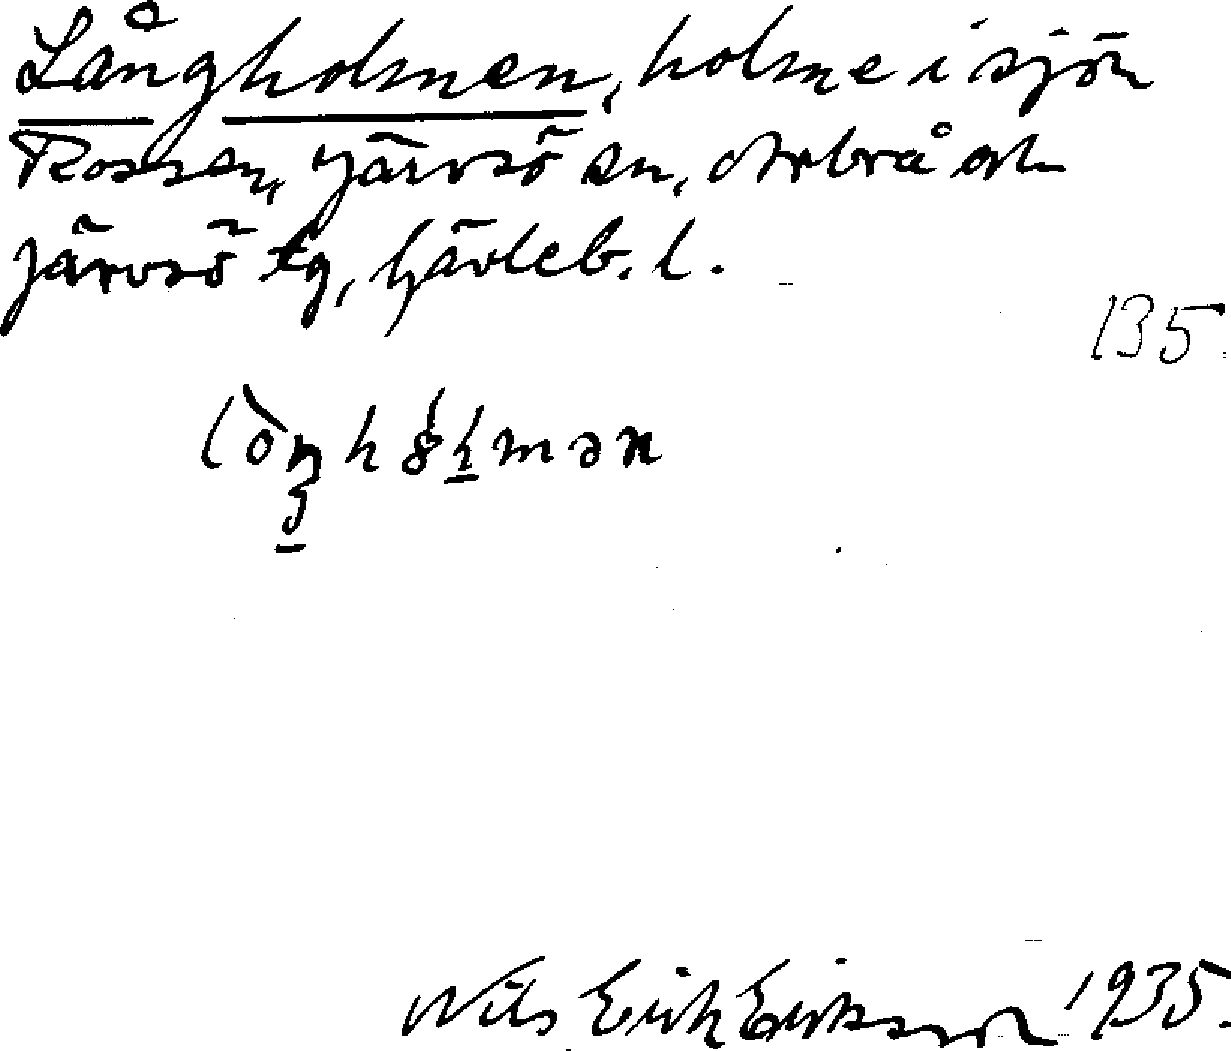 Långholmen, holme i sjön
Rossen, Järvsö sn, Arbrå och
Järvsö tg, Gävleb. l.
135.
Nils Erik Eriksson 1935.